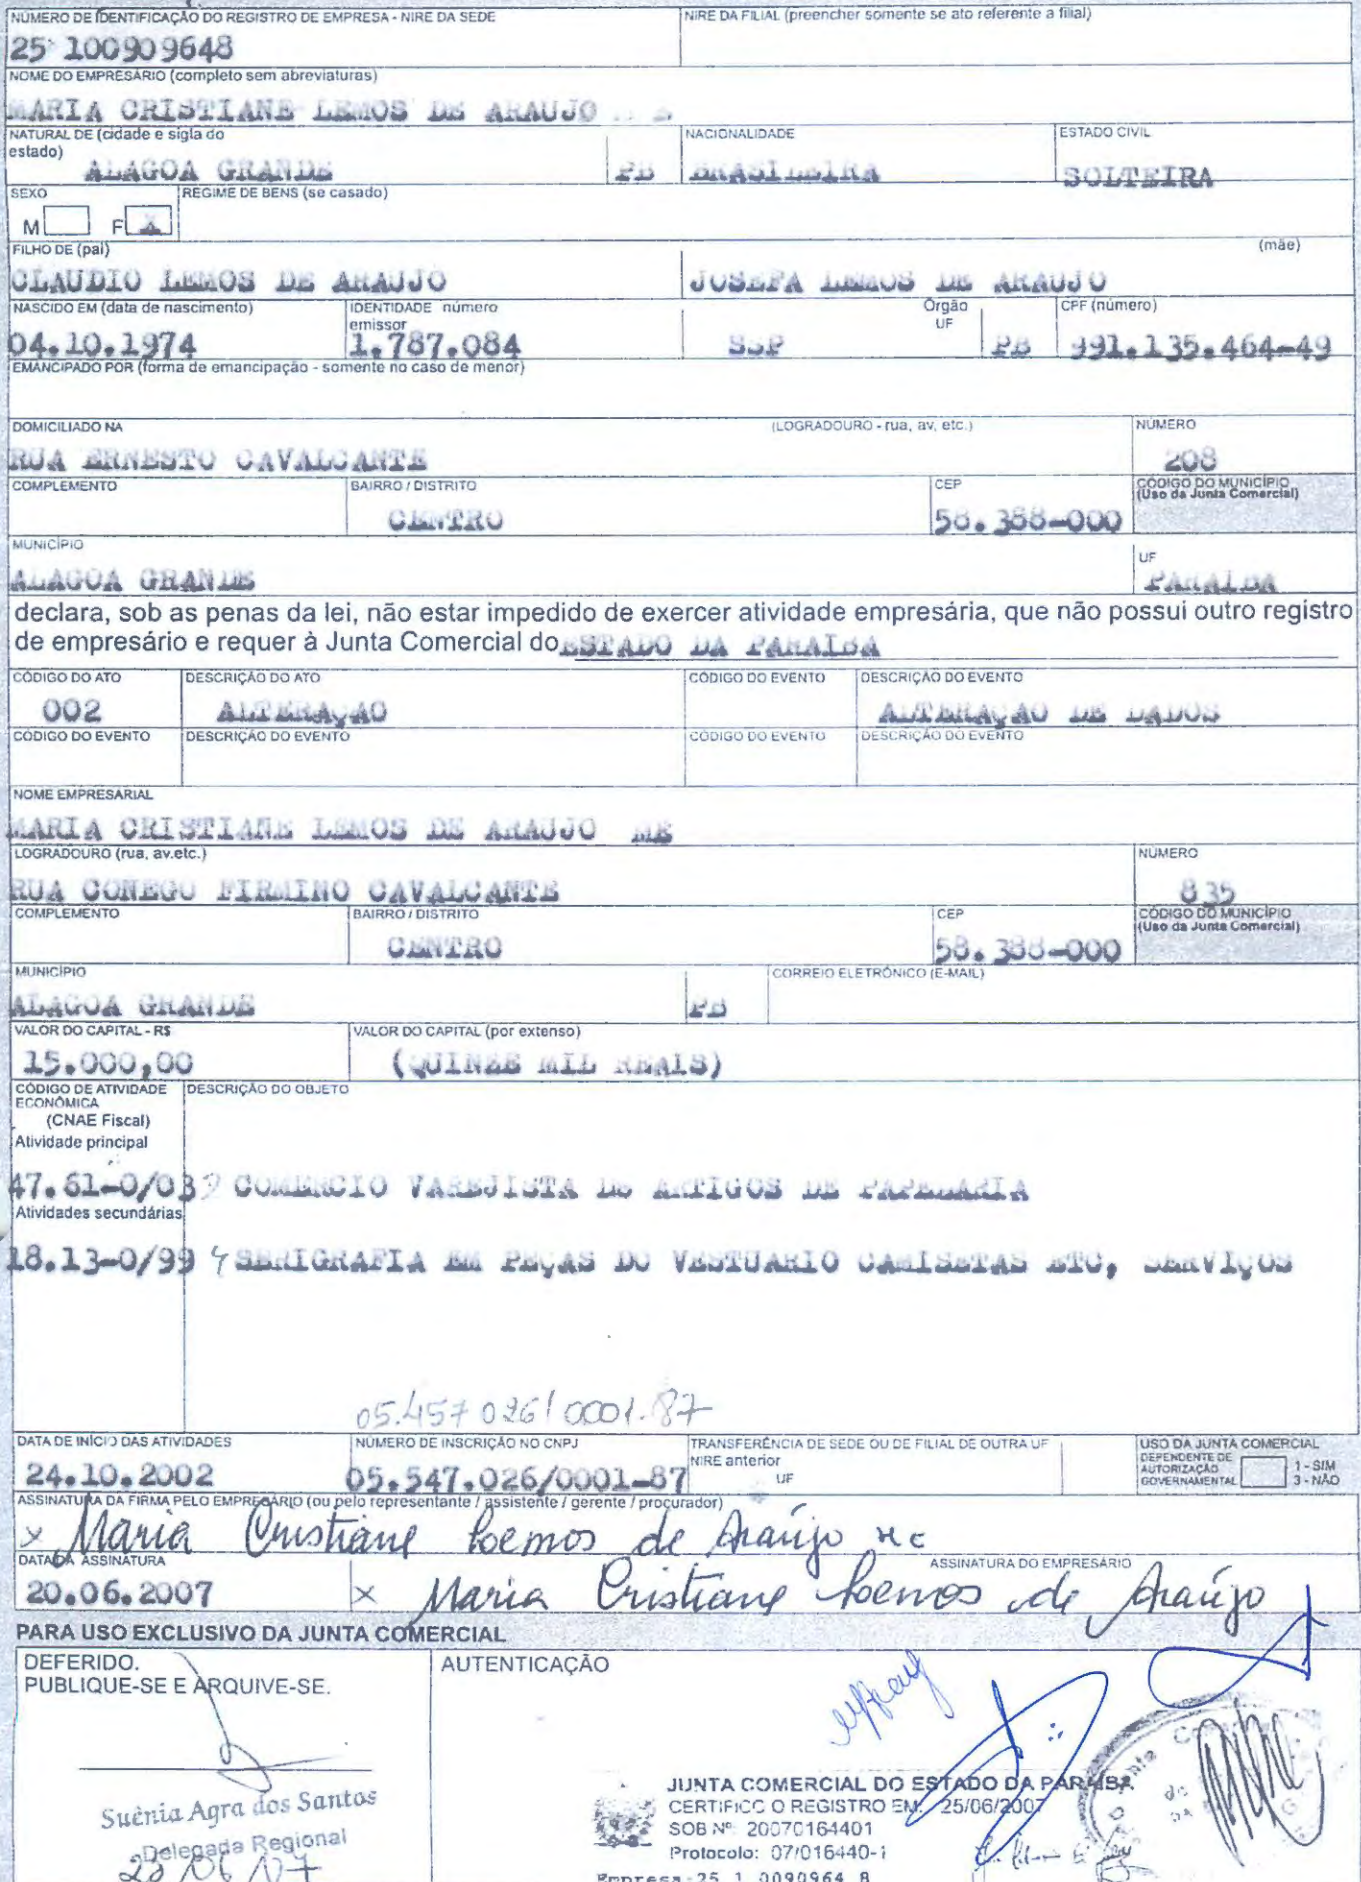 NÚMERO DE IDENTIFICAÇÃO DO REGISTRO DE EMPRESA - NIRE DA SEDE
NIRE DA FILIAL (preencher somente se ato referente a filial)
25 100909648
NOME DO EMPRESÁRIO (completo sem abreviaturas)
MARIA CRISTIANE LEMOS DE ARAUJO
NATURAL DE (cidade e sigla do estado)
NACIONALIDADE
ESTADO CIVIL
ALAGOA GRANDE PB BRASILEIRA SOLTEIRA
SEXO
REGIME DE BENS (se casado)
M F X
FILHO DE (pai)
(mãe)
CLAUDIO LEMOS DE ARAUJO JOSEFA LEMOS DE ARAUJO
NASCIDO EM (data de nascimento)
IDENTIDADE número
emissor
Órgão
UF
CPF (número)
04.10.1974 1.787.084 SSP PB 991.135.464-49
EMANCIPADO POR (forma de emancipação - somente no caso de menor)
DOMICILIADO NA
(LOGRADOURO - rua, av, etc.)
NÚMERO
RUA ERNESTO CAVALCANTE 208
COMPLEMENTO
BAIRRO / DISTRITO
CEP
CÓDIGO DO MUNICÍPIO
(Uso da Junta Comercial)
CENTRO 58.388-000
MUNICÍPIO
UF
ALAGOA GRANDE PARAIBA
declara, sob as penas da lei, não estar impedido de exercer atividade empresária, que não possui outro registro
de empresário e requer à Junta Comercial do ESTADO DA PARAIBA
CÓDIGO DO ATO
DESCRIÇÃO DO ATO
CÓDIGO DO EVENTO
DESCRIÇÃO DO EVENTO
002 ALTERAÇAO ALTERAÇAO DE DADOS
CÓDIGO DO EVENTO
DESCRIÇÃO DO EVENTO
CÓDIGO DO EVENTO
DESCRIÇÃO DO EVENTO
NOME EMPRESARIAL
MARIA CRISTIANE LEMOS DE ARAUJO ME
LOGRADOURO (rua, av.etc.)
NÚMERO
RUA CONEGO FIRMINO CAVALCANTE 835
COMPLEMENTO
BAIRRO / DISTRITO
CEP
CÓDIGO DO MUNICÍPIO
(Uso da Junta Comercial)
CENTRO 58.388-000
MUNICÍPIO
CORREIO ELETRÔNICO (E-MAIL)
ALAGOA GRANDE PB
VALOR DO CAPITAL - R$
VALOR DO CAPITAL (por extenso)
15.000,00 (QUINZE MIL REAIS)
CÓDIGO DE ATIVIDADE ECONÔMICA
DESCRIÇÃO DO OBJETO
(CNAE Fiscal)
Atividade principal
47.61-0/03 COMERCIO VAREJISTA DE ARTIGOS DE PAPELARIA
Atividades secundárias
18.13-0/99 SERIGRAFIA EM PEÇAS DO VESTUARIO CAMISETAS ETC, SERVIÇOS
05.457 026/0001.87
DATA DE INÍCIO DAS ATIVIDADES
NÚMERO DE INSCRIÇÃO NO CNPJ
TRANSFERÊNCIA DE SEDE OU DE FILIAL DE OUTRA UF
NIRE anterior
UF
USO DA JUNTA COMERCIAL
DEPENDENTE DE AUTORIZAÇÃO GOVERNAMENTAL
1 - SIM
3 - NÃO
24.10.2002 05.547.026/0001-87
ASSINATURA DA FIRMA PELO EMPRESÁRIO (ou pelo representante / assistente / gerente / procurador)
x Maria Cristiane Lemos de Araújo
DATA DA ASSINATURA
ASSINATURA DO EMPRESÁRIO
20.06.2007 x Maria Cristiane Lemos de Araújo
PARA USO EXCLUSIVO DA JUNTA COMERCIAL
DEFERIDO.
PUBLIQUE-SE E ARQUIVE-SE.
AUTENTICAÇÃO
Suênia Agra dos Santos
Delegada Regional
JUNTA COMERCIAL DO ESTADO DA PARAÍBA
CERTIFICO O REGISTRO EM: 25/06/2007
SOB Nº: 20070164401
Protocolo: 07/016440-1
Empresa:25 1 0090964 8